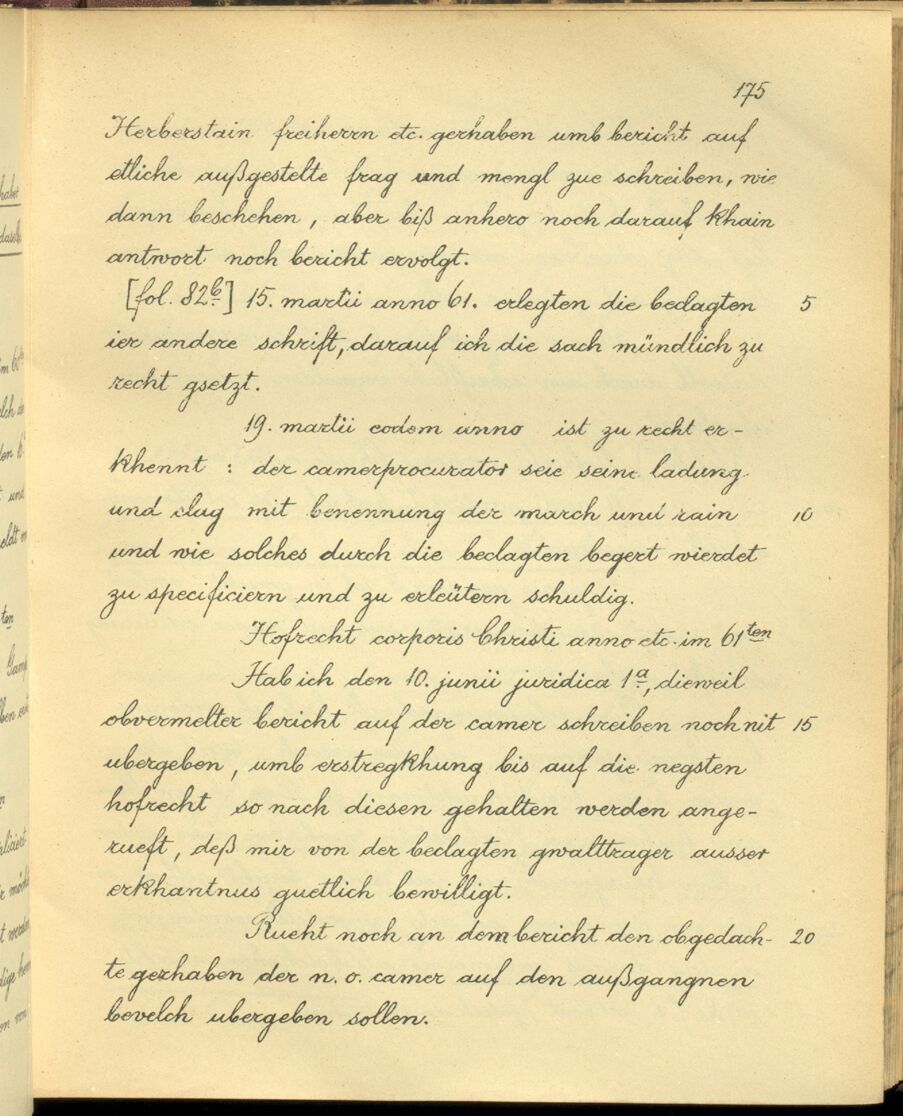 175
Herberstain freiherrn etc. gerhaben umb bericht auf
etliche außgestelte frag und mengl zue schreiben, wie
dann beschehen, aber biß anhero noch darauf khain
antwort noch bericht ervolgt.
[fol. 82b] 15. martii anno 61. erlegten die beclagten 5
ier andere schrift, darauf ich die sach mündlich zu
recht gsetzt.
19. martii eodem anno ist zu recht er-
khennt: der camerprocurator seie seine ladung
und clag mit benennung der march und rain 10
und wie solches durch die beclagten begert wierdet
zu specificiern und zu erleütern schuldig.
Hofrecht corporis Christi anno etc. im 61ten
Hab ich den 10. junii juridica 1a, dieweil
obvermelter bericht auf der camer schreiben noch nit 15
ubergeben, umb erstregkhung bis auf die negsten
hofrecht so nach diesen gehalten werden ange-
rueft, deß mir von der beclagten gwalttrager ausser
erkhantnus guetlich bewilligt.
Rueht noch an dem bericht den obgedach- 20
te gerhaben der n. o. camer auf den außgangnen
bevelch ubergeben sollen.